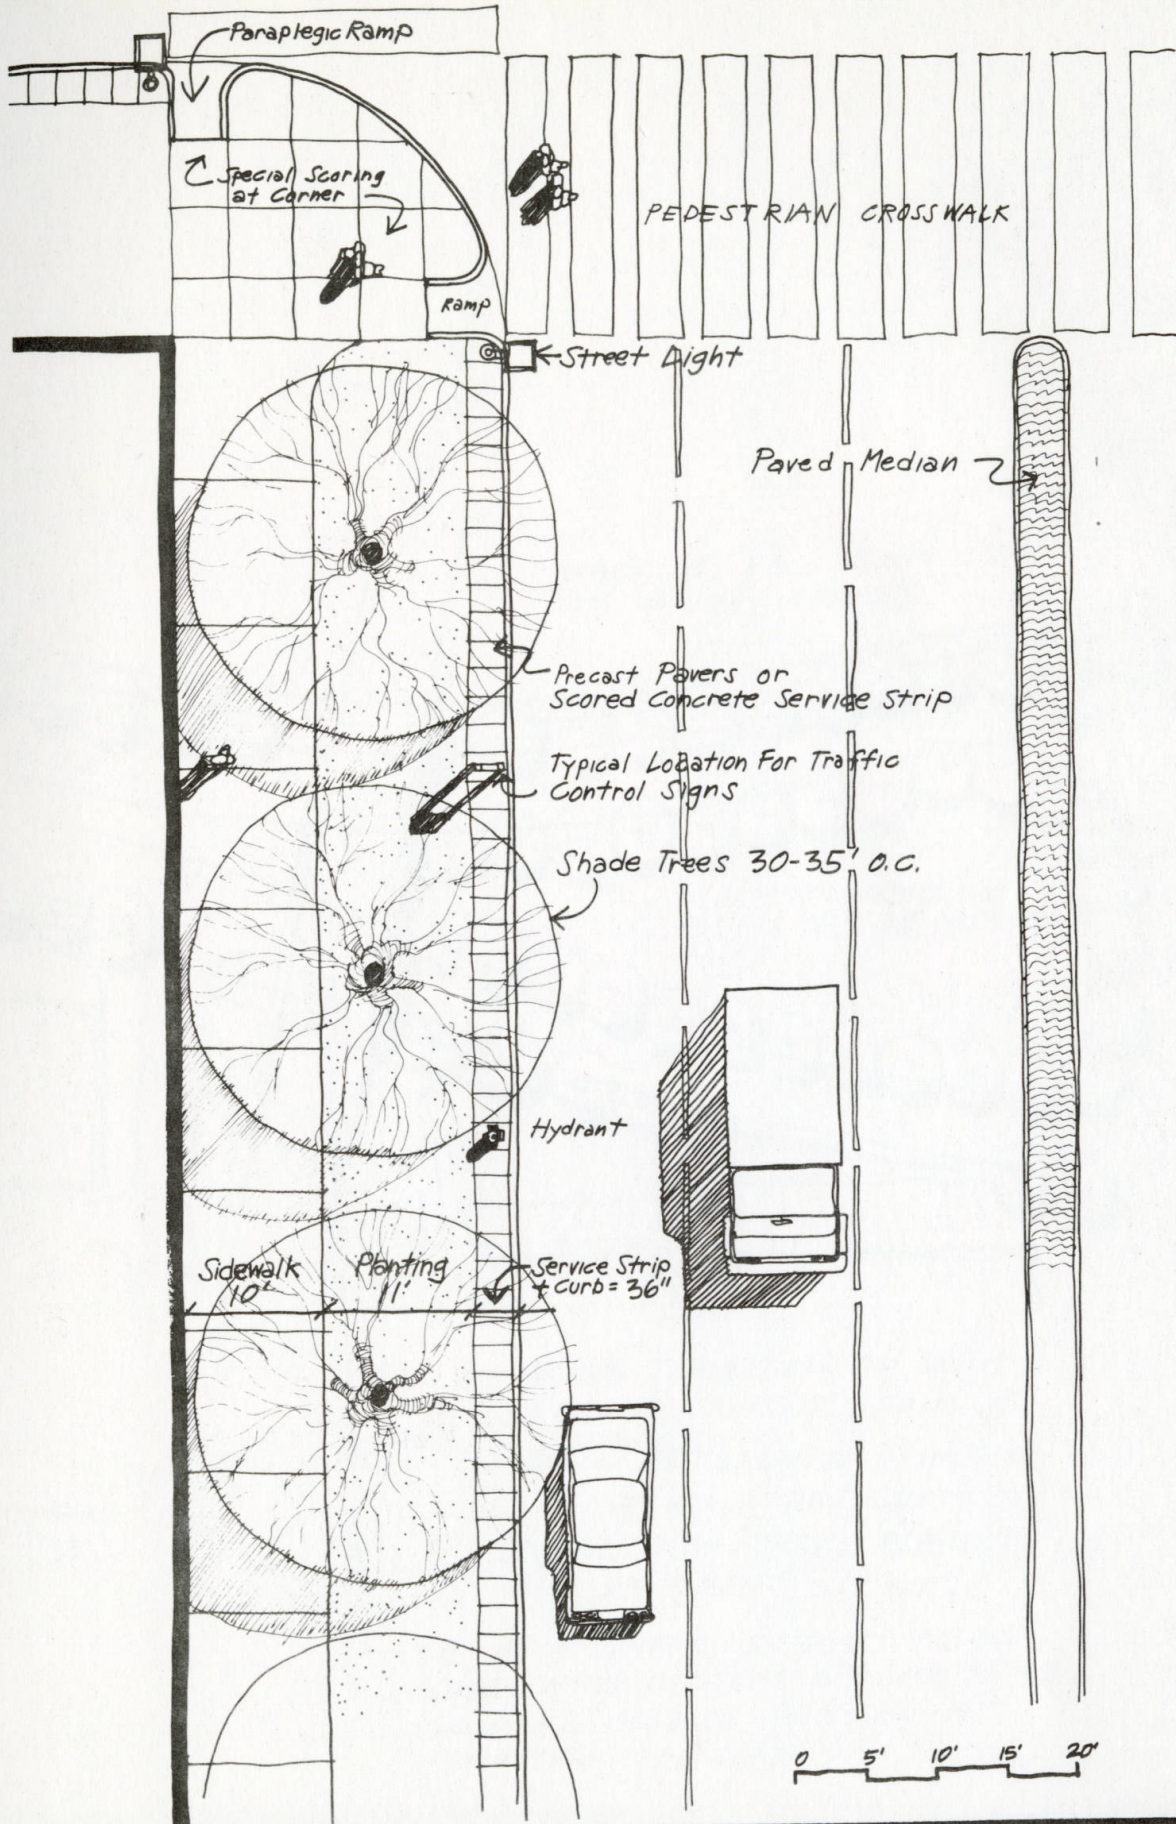 Paraplegic Ramp
Special Scoring
at Corner
PEDESTRIAN CROSSWALK
Ramp
Street Light
Paved Median
Precast Pavers or
Scored Concrete Service Strip
Typical Location For Traffic
Control Signs
Shade Trees 30-35' O.C.
Hydrant
Sidewalk
10'
Planting
11'
Service Strip
+ Curb = 36"
0 5' 10' 15' 20'